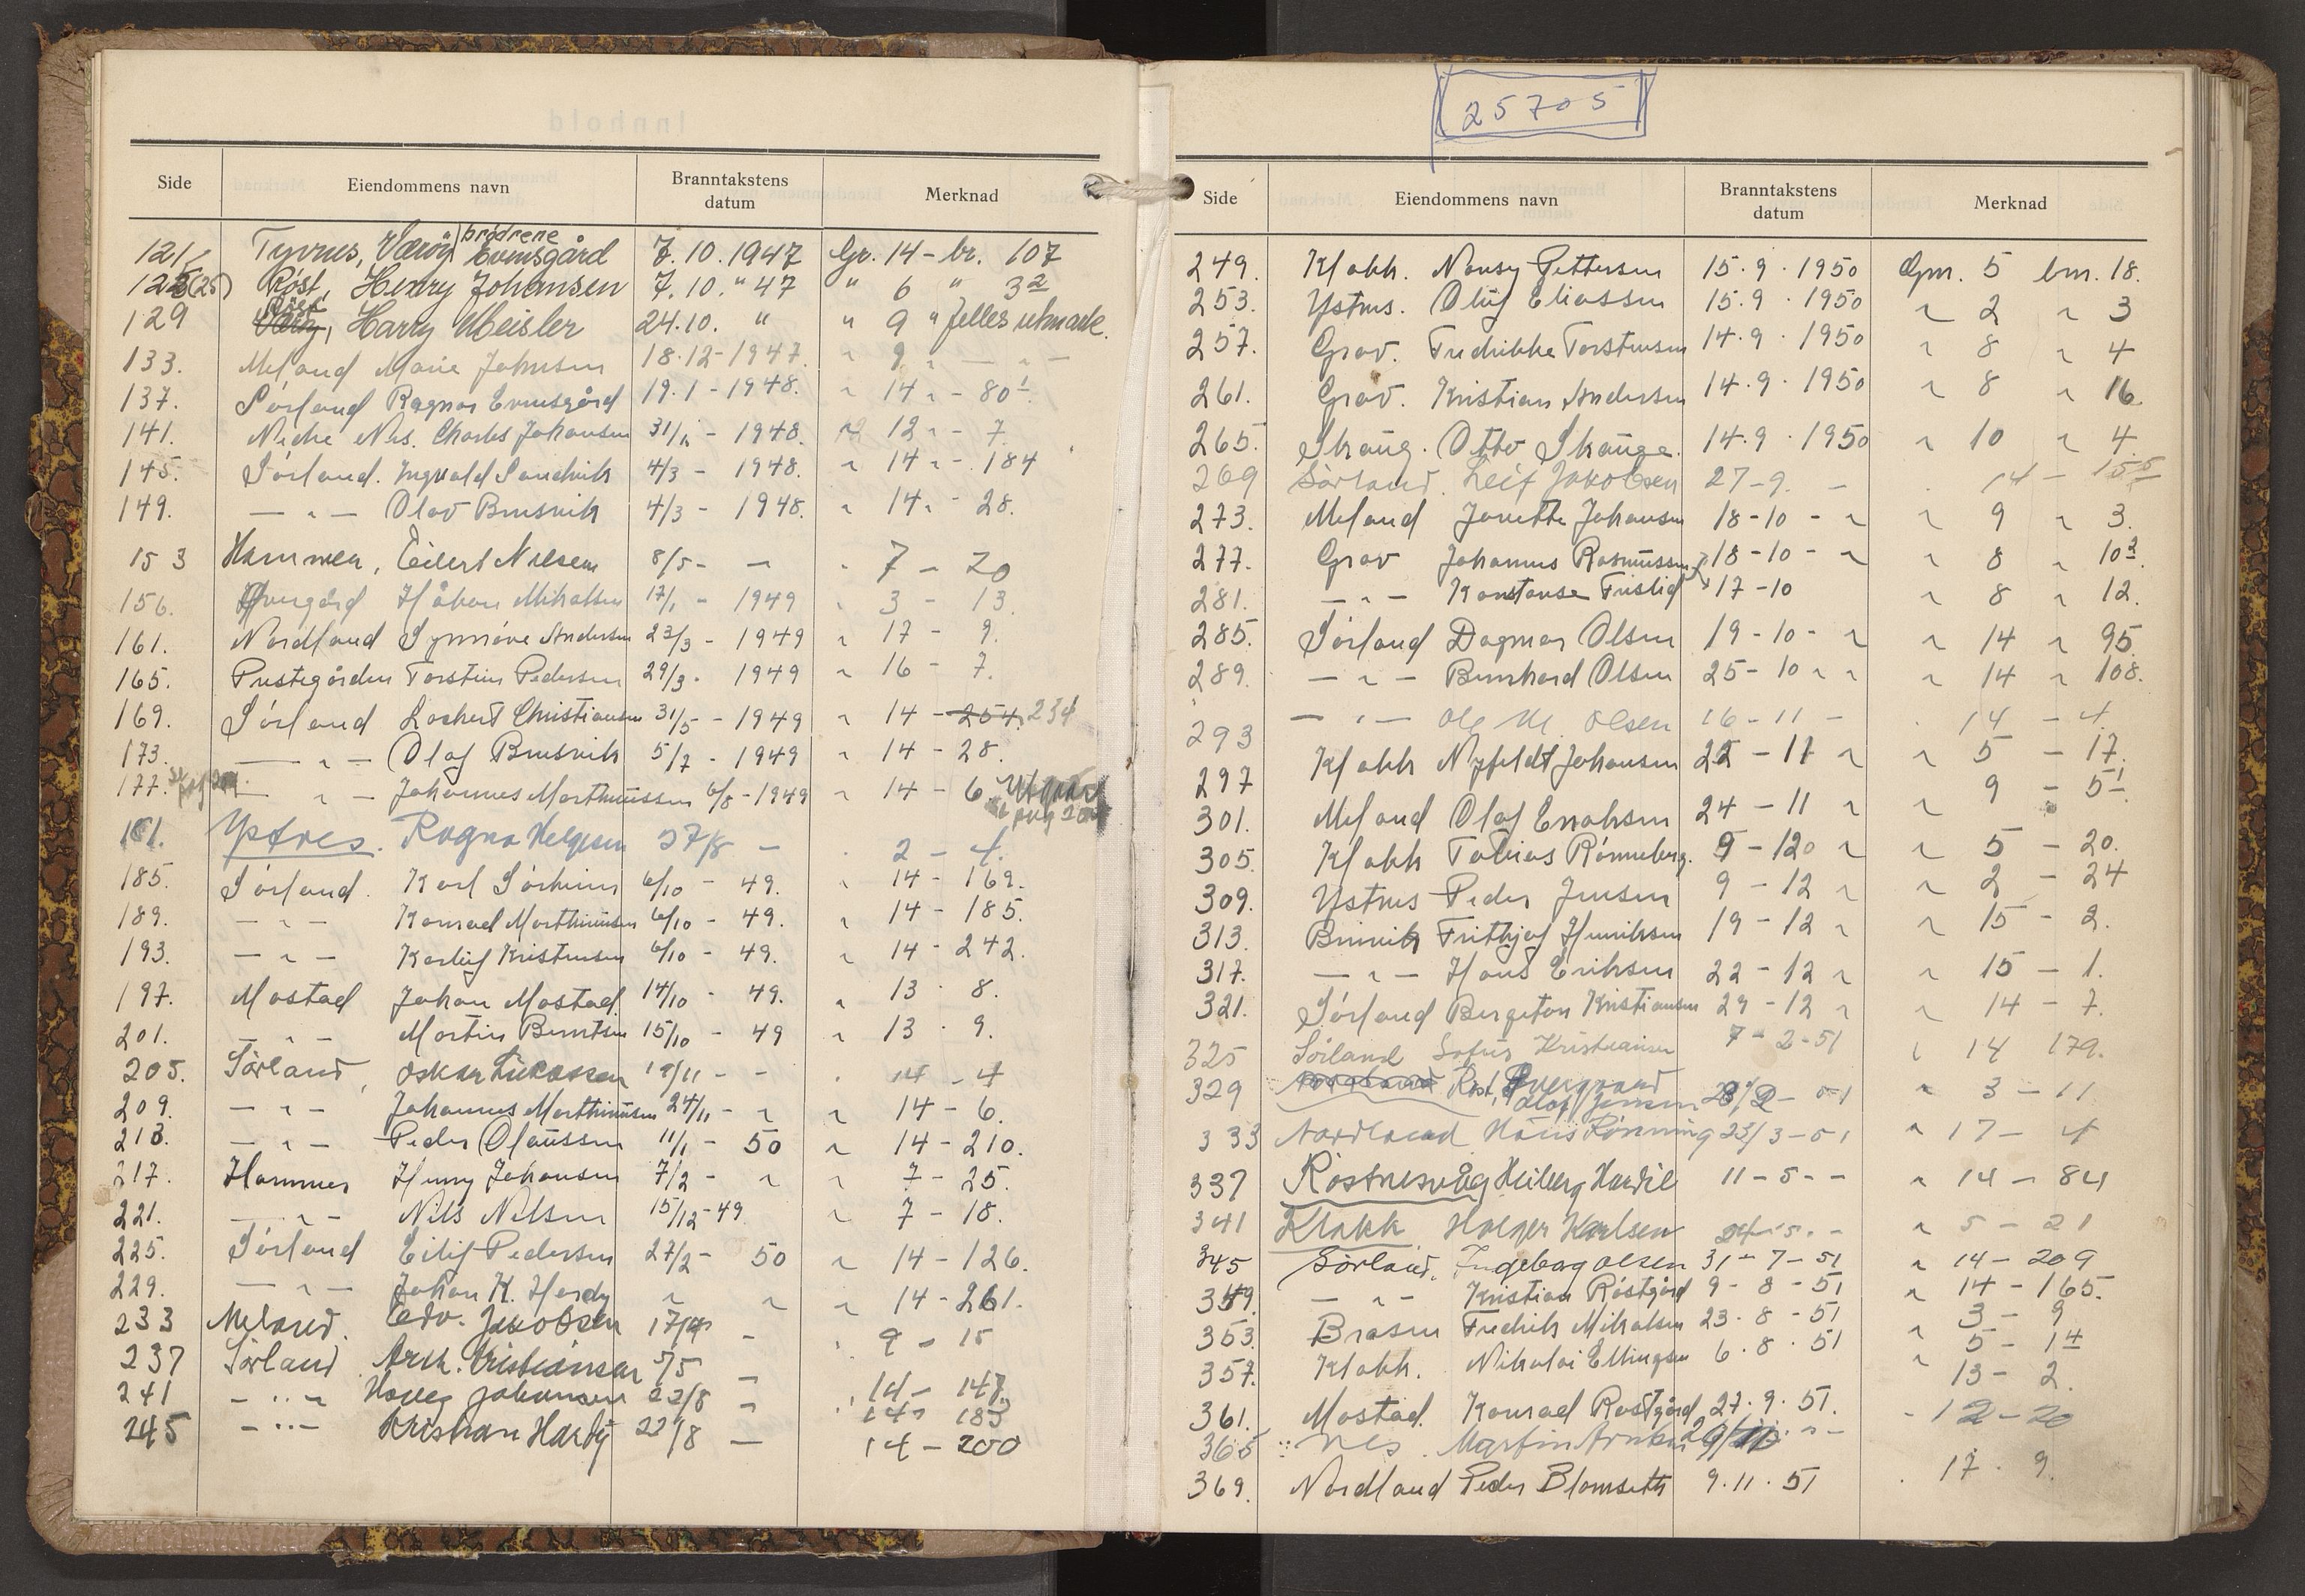 Side Eiendommens navn Branntakstens datum Merknad
121 Tyvnes, Værøy brødrene Evensgård 7.10.1947 Gr. 14 - br. 107
125 (25) Røst, Henry Johansen 7.10. " 47 " 6 " 32
129 Røst, Harry Meisler 24.10. " " 9 " felles utmark
133. Meland Marie Johnsen 18.12-1947. " 9. " — " —
137. Sørland Ragnar Evensgård 19.1-1948. " 14 " - 80 1
141. Nedre Nes. Charles Johansen 31/1 - 1948. 12 " - 7.
145. Sørland. Ingvald Sandvik 4/3 - 1948. " 14 " - 184
149. — " — Olav Brusvik 4/3 - 1948. " 14 " - 28.
153 Hammer, Eilert Nilsen 8/5 - — " 7 - 20
156. Øvergård Håkon Mikalsen 17/1 - 1949 " 3 - 13.
161. Nordland Synnøve Andersen 23/3 - 1949 " 17 - 9.
165. Prestegården Torstein Pedersen 29/3 - 1949 " 16 - 7.
169. Sørland Lockert Christiansen 31/5 - 1949 " 14 - 254. 234
173. — " — Olaf Brusvik 5/7 - 1949 " 14 - 28.
177. — " — Johannes Marthinussen 6/8 - 1949 " 14 - 6. Utgått
181. Ystnes. Ragna Helgesen 27/8 — " 2 - 4.
185. Sørland. Karl Sørheim 6/10 - 49. " 14 - 169.
189. — " — Konrad Marthinussen 6/10 - 49. " 14 - 185.
193. — " — Karleif Kristensen 6/10 - 49. " 14 - 242.
197. Mostad Johan Mostad. 14/10 - 49. " 13 - 8.
201. — " — Martin Berntsen 15/10 - 49 " 13 - 9.
205. Sørland, Oskar Lukassen 19/11 - - " 14 - 4
209. — " — Johannes Marthinussen 24/11 - " " 14 - 6.
213. — " — Peder Olaussen 11/1 - 50 " 14 - 210.
217. Hammer Henny Johansen 7/2 - " " 7 - 25.
221. — " — Nils Nilsen 15/12 - 49. " 7 - 18.
225. Sørland Eilif Pedersen 27/2 - 50 " 14 - 126.
229. — " — Johan K. Hardy " " " 14 - 261.
233 Meland. Edv. Jakobsen 17/4 - " 9 - 15
237 Sørland Ark. Kristiansen 5/5 — 14 - 147.
241 — " — Johansen 22/8 — 14 - 183
245 — " — Kristian Hardy 22/8 — 14 - 200
25705
Side Eiendommens navn Branntakstens datum Merknad
249. Klakk. Nansy Pettersen 15.9.1950 Gnr. 5 bnr. 18.
253. Ystnes. Oluf Eliassen 15.9.1950 " 2 " 3
257. Grav. Fredrikke Torstensen 14.9.1950 " 8 " 4
261. Grav. Kristian Andersen 14.9.1950 " 8 " 16
265. Skaug. Otto Skauge. 14.9.1950 " 10 " 4.
269 Sørland. Leif Jakobsen 27-9. — . 14 - 155
273. Meland Janette Johansen 18-10 - " " 9 " 3.
277. Grav Johannes Rasmussen 18-10 - " " 8 " 10 3.
281. — " — Konstanse Fristig 17-10 " 8 " 12.
285. Sørland Dagmar Olsen 19-10- " " 14 " 95.
289. — " — Bernhard Olsen 25-10 " " " 14 " 108.
293 — " — Ole M. Olsen 16-11 - . 14 - 4.
297 Klakk Nyfeldt Johansen 22-11 " " 5 - 17.
301. Meland Olaf Enoksen 24-11 " " 9 - 5 1
305. Klakk Tobias Rønneberg. 9-120 " " 5 - 20.
309. Ystnes Peder Jensen 9-12 " " 2 - 24
313. Breivik Frithjof Henriksen 19-12 " " 15 - 2.
317. — " — Hans Eriksen 22-12 " " 15 - 1.
321. Sørland Bergeton Kristiansen 29-12 " " 14 - 7.
325 Sørland Sofus Kristiansen 7-2-51 " 14 179.
329 Røst, Øvergaard Olaf Jensen 28/2 - 51 " 3 - 11
333 Nordland Hans Rønning 23/3-51 " 17 - 4
337 Røstnesvåg Heiberg Hardil 11-5- - " 14 - 84
341 Klakk Holger Karlsen 24-5. - " 5 - 21
345 Sørland. Ingeborg Olsen 31-7-51 " 14 - 209
349. — " — Kristian Røstgård 9-8-51 " 14 - 165.
353. Brasen Fredrik Mikalsen 23.8-51 " 3 - 9
357. Klakk. Nikolai Ellingsen 6.8.51 " 5 - 14
361. Mostad. Konrad Rostgård 27.9.51. 13 - 2.
365 Nes. Martin Arntsen - 12 - 20
369. Nordland Peder Blomseth 9.11.51 . 17 . 9.